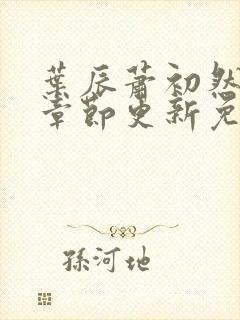 葉辰蕭初然
章節更新免
孫河地